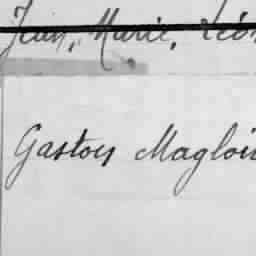 Jean, Marie, Léon
Gaston Magloi